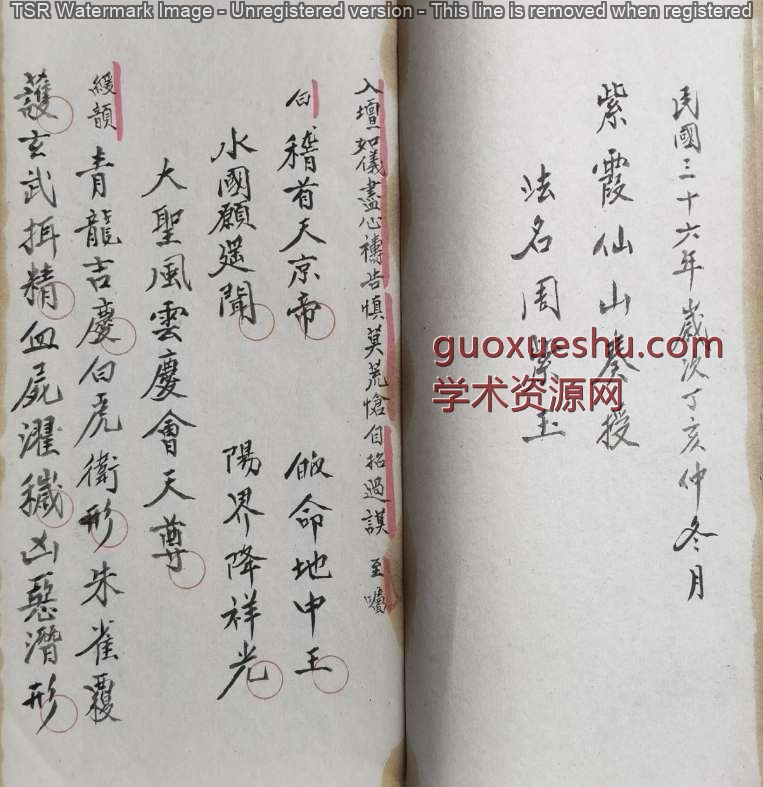 TSR Watermark Image - Unregistered version - This line is removed when registered
民國三十六年歲次丁亥仲冬月
紫霞仙山奏授
法名周紫玉
guoxueshu.com
学术资源网
入壇如儀盡心禱告慎莫荒愴自招過謨 至囑
白 稽首天京帝 皈命地中王
水國願遥聞 陽界降祥光
大聖風雲慶會天尊
緩韻 青龍吉慶白虎衛形朱雀覆
護玄武揖精血屍濯穢凶惡潛形